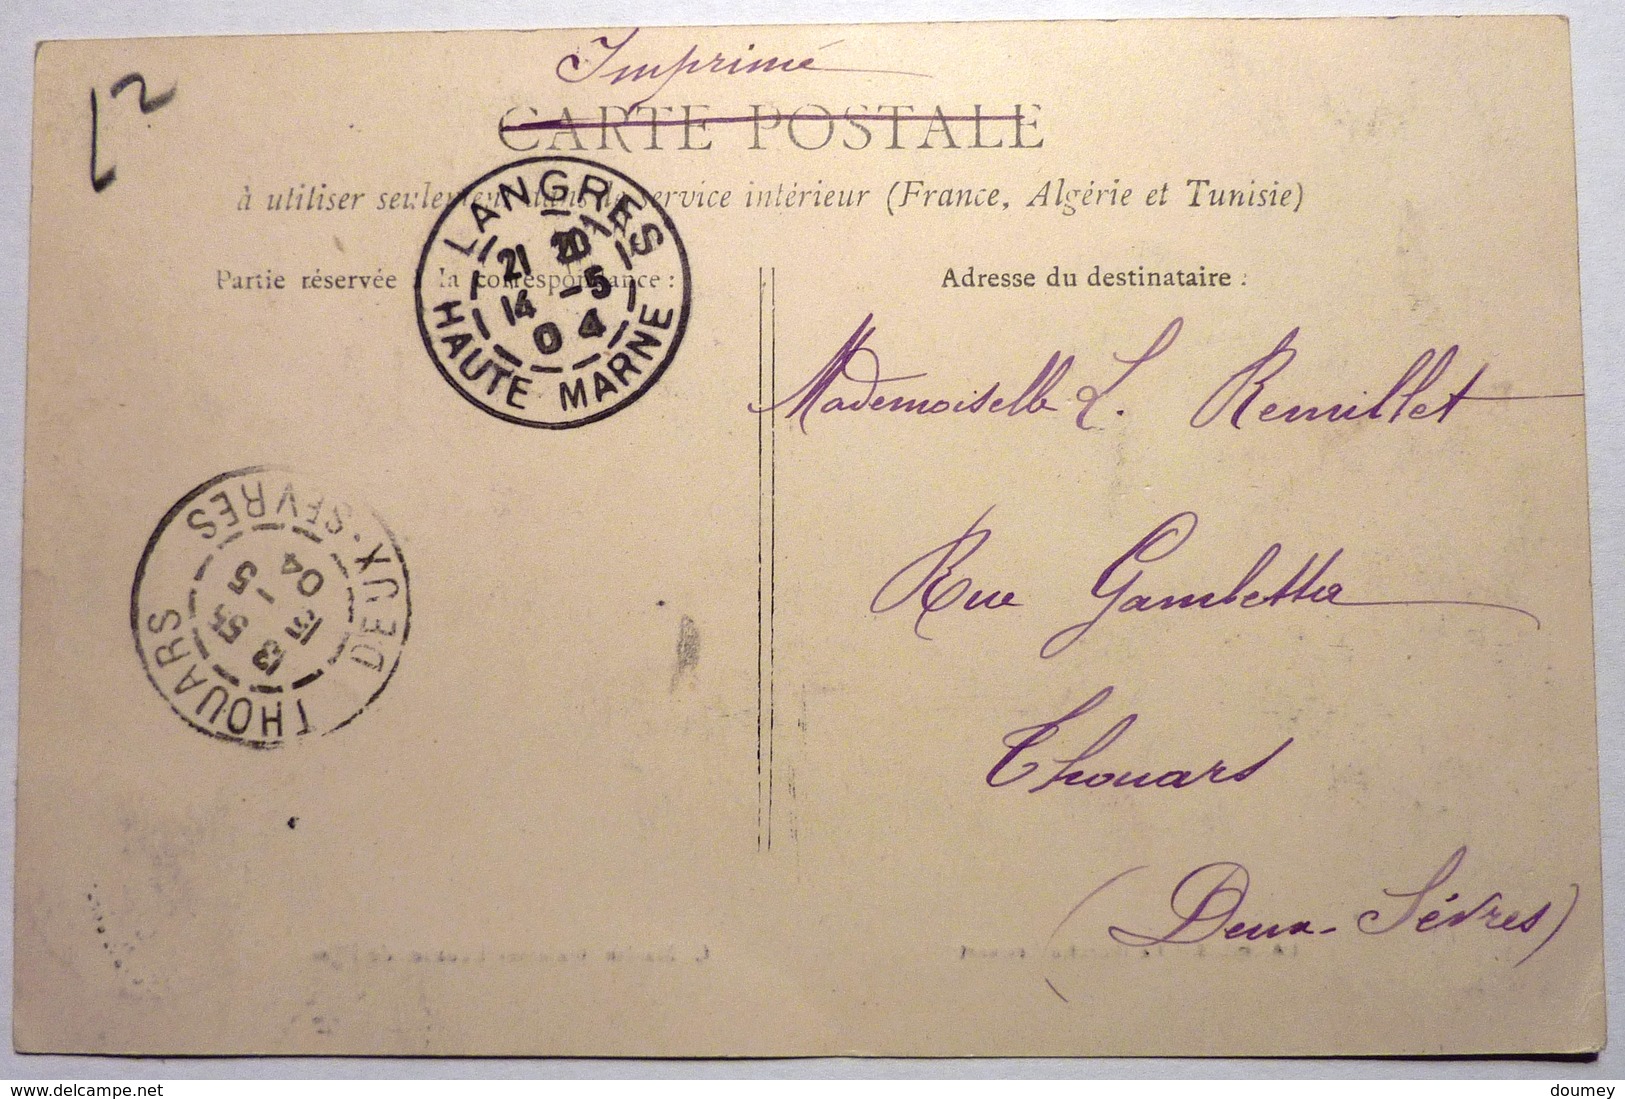 Imprimé
12
CARTE POSTALE
à utiliser seulement dans le service intérieur (France, Algérie et Tunisie)
Partie réservée à la correspondance :
Adresse du destinataire :
LANGRES
21 20
14 -5
04
HAUTE MARNE
Mademoiselle L. Remillet
Rue Gambetta
Thouars
(Deux-Sèvres)
THOUARS
13
15 -5
04
DEUX-SEVRES
www.delcampe.net
doumey